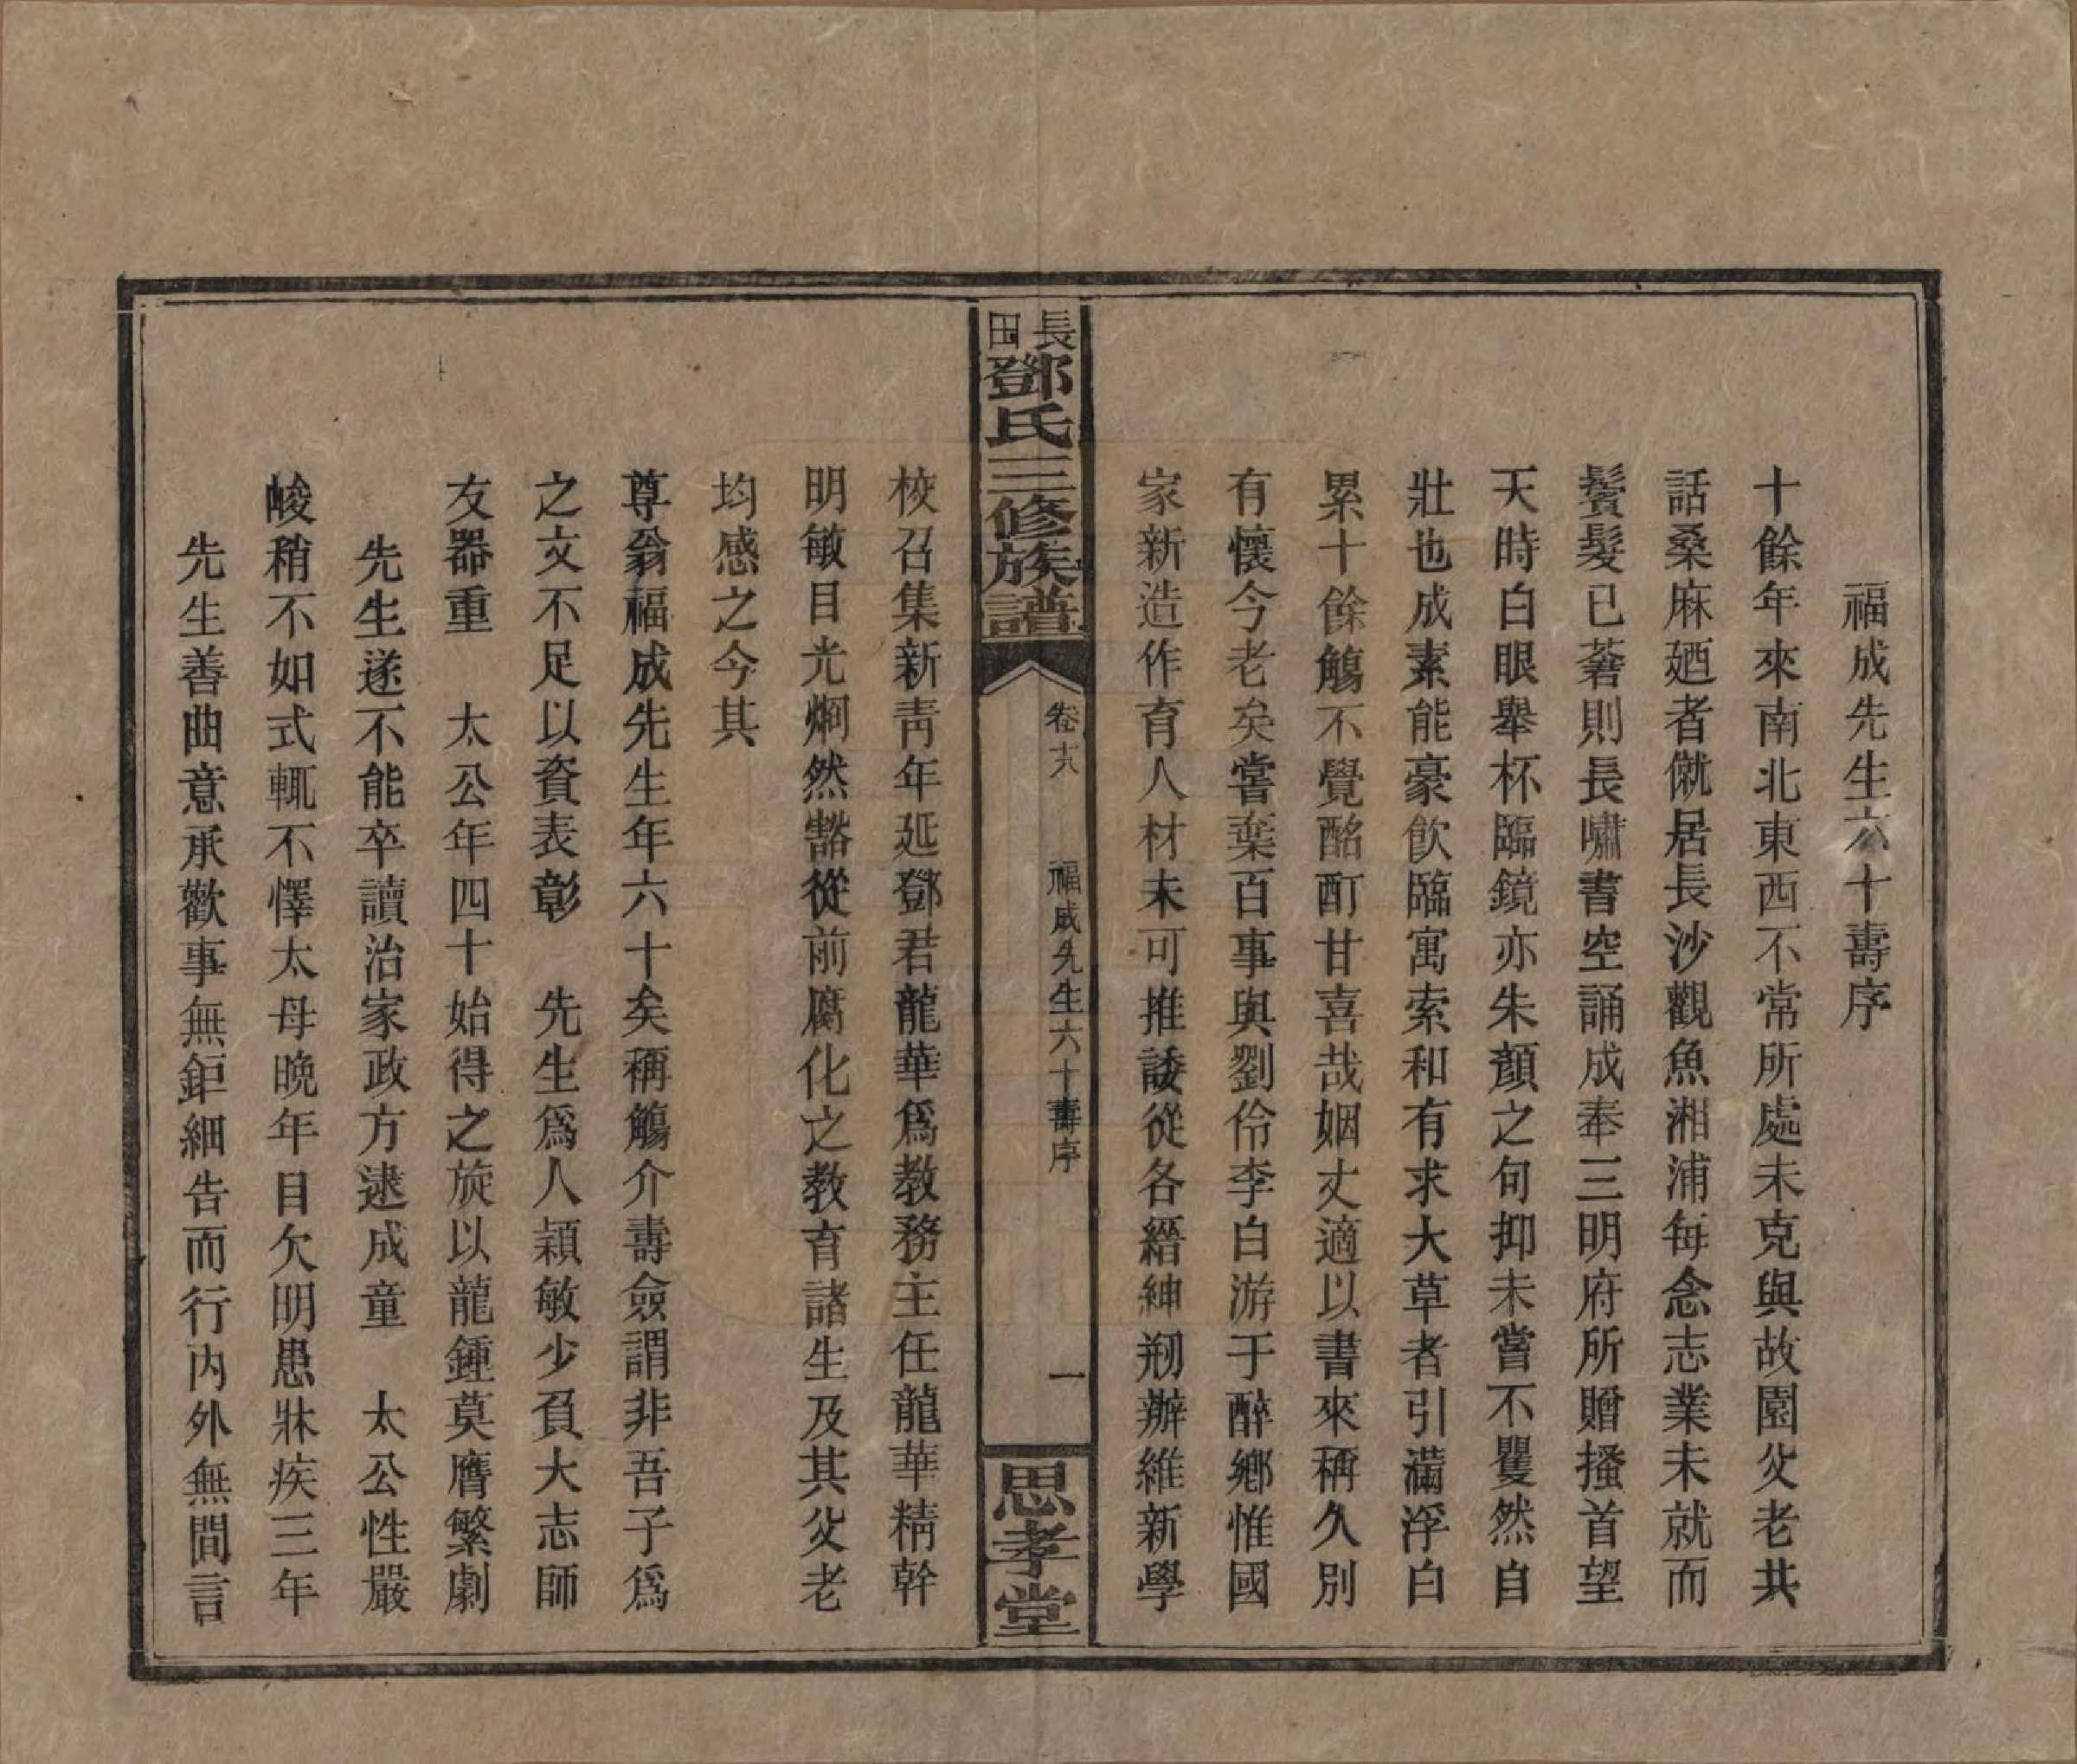 福成先生六十壽序
十餘年來南北東西不常所處未克與故園父老共
話桑麻廼者僦居長沙觀魚湘浦每念志業未就而
鬢髮已蒼則長嘯書空誦成奉三明府所贈搔首望
天時白眼舉杯臨鏡亦朱顏之句抑未嘗不瞿然自
壯也成素能豪飲臨寓索和有求大草者引滿浮白
累十餘觴不覺酩酊甘喜哉姻丈適以書來稱久別
有懷今老矣嘗棄百事與劉伶李白游于醉鄕惟國
家新造作育人材未可推諉從各縉紳剏辦維新學
長田鄧氏三修族譜
卷十六
福成先生六十壽序
一
思孝堂
校召集新靑年延鄧君龍華爲敎務主任龍華精幹
明敏目光烱然豁從前腐化之敎育諸生及其父老
均感之今其
尊翁福成先生年六十矣稱觴介壽僉謂非吾子爲
之文不足以資表彰　先生爲人穎敏少負大志師
友器重　太公年四十始得之旋以龍鍾莫膺繁劇
先生遂不能卒讀治家政方逮成童　太公性嚴
峻稍不如式輒不懌太母晚年目欠明患牀疾三年
先生善曲意承歡事無鉅細告而行内外無間言